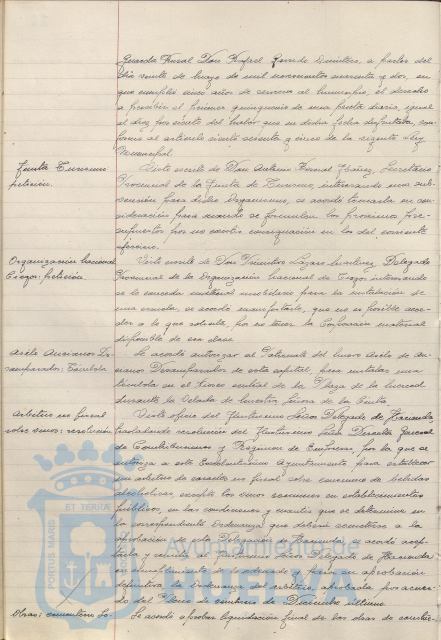 Guarda Rural Don Rafael Garrido Quintero, a partir del
día veinte de mayo de mil novecientos cuarenta y dos, en
que cumplió cinco años de servicio al Municipio, el derecho
a percibir el primer quinquenio de una peseta diaria, igual
al diez por ciento del haber que en dicha fecha disfrutaba, con-
forme al artículo ciento setenta y cinco de la vigente Ley
Municipal.
Junta Turismo:
petición.
Visto escrito de Don Antonio Bernal Ybáñez, Secretario
Provincial de la Junta de Turismo, interesando una sub-
vención para dicho Organismo, se acordó tomarla en con-
sideración para cuando se formulen los próximos Pre-
supuestos por no existir consignación en los del corriente
ejercicio.
Organización Nacional
Ciegos: petición.
Visto escrito de Don Lázaro Martínez, Delegado
Provincial de la Organización Nacional de Ciegos, interesando
se le conceda material mobiliario para la instalación de
una escuela, se acordó manifestarle, que no es posible acce-
der a lo que solicita, por no tener la Corporación material
disponible de esa clase.
Asilo Ancianos De-
samparados: Tómbola
Se acordó autorizar al Patronato del nuevo Asilo de An-
cianos Desamparados de esta capital, para instalar una
tómbola en el Kiosco central de la Plaza de la Merced
durante la Velada de Nuestra Señora de la Cinta.
Arbitrio no fiscal
sobre vinos: resolución
Visto oficio del Ilustrísimo Señor Delegado de Hacienda,
trasladando resolución del Ilustrísimo Señor Director General
de Contribuciones y Régimen de Empresas, por la que se
autoriza a este Excelentísimo Ayuntamiento para establecer
un arbitrio de carácter no fiscal sobre consumo de bebidas
alcohólicas, excepto los vinos comunes en establecimientos
públicos, en las condiciones y cuantía que se determine en
la correspondiente Ordenanza que deberá someterse a la
aprobación de esta Delegación de Hacienda, se acordó acep-
tarla y remitir al Ilustrísimo Señor Delegado de Hacienda
en cumplimiento de lo ordenado y para su aprobación
definitiva la Ordenanza del arbitrio, aprobada por acuer-
do del Pleno de veintiuno de Diciembre último.
Obras:
Se acordó aprobar liquidación final de las obras de
PORTUS MARIS
ET TERRAE
Ayuntamiento de
HUELVA